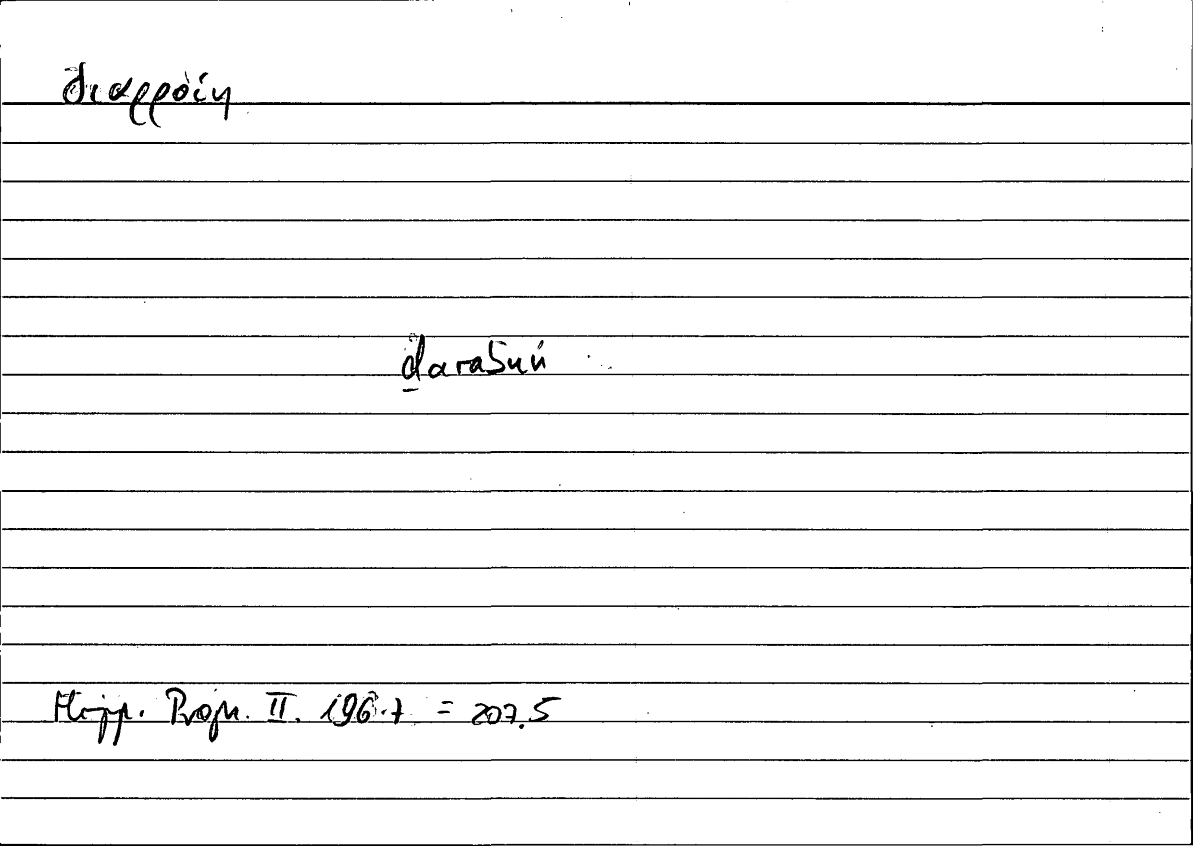 διαρροίη
ḏarabun
Hipp. Progn. II. 196.7 = 207.5